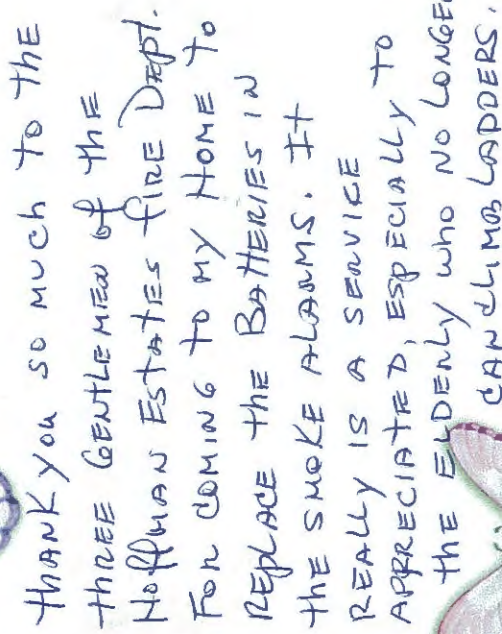 THANK YOU SO MUCH TO THE
THREE GENTLEMEN OF THE
HOFFMAN ESTATES FIRE DEPT.
FOR COMING TO MY HOME TO
REPLACE THE BATTERIES IN
THE SMOKE ALARMS. IT
REALLY IS A SERVICE
APPRECIATED, ESPECIALLY TO
THE ELDERLY WHO NO LONGER
CAN CLIMB LADDERS.